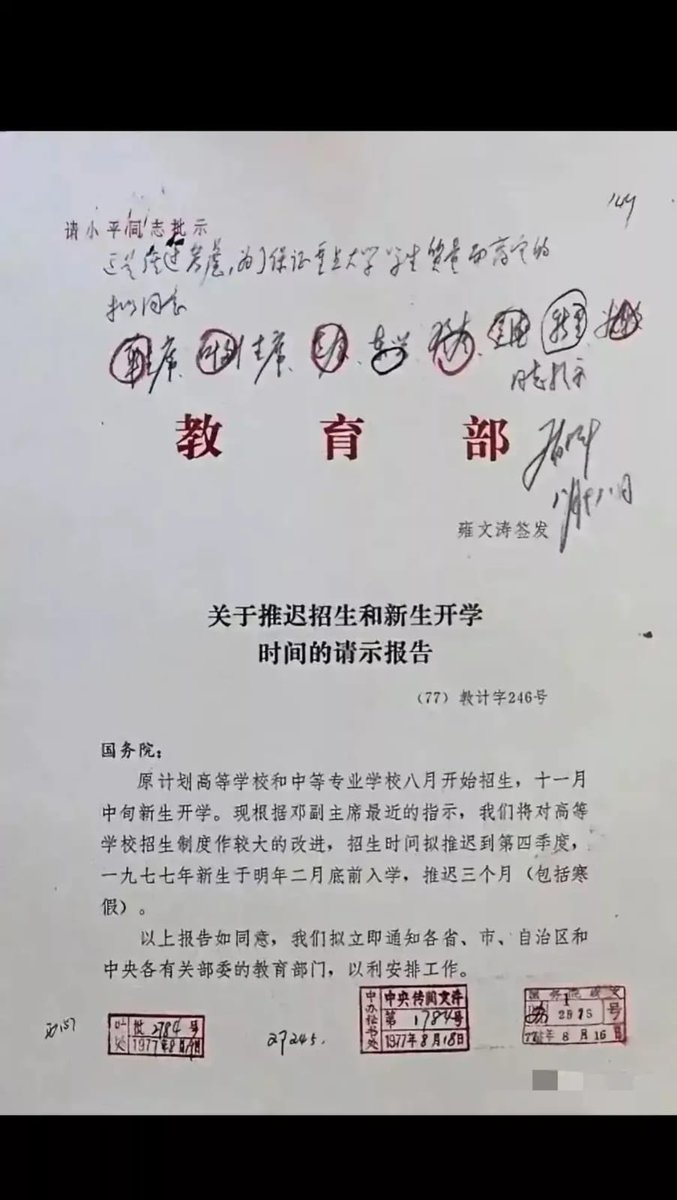 请小平同志批示
这是推迟考虑，为了保证重点大学学生质量而商定的
拟同意
主席、主席、
同志批示
教育部
八月十八日
雍文涛签发
关于推迟招生和新生开学
时间的请示报告
（77）教计字246号
国务院：
原计划高等学校和中等专业学校八月开始招生，十一月
中旬新生开学。现根据邓副主席最近的指示，我们将对高等
学校招生制度作较大的改进，招生时间拟推迟到第四季度，
一九七七年新生于明年二月底前入学，推迟三个月（包括寒
假）。
以上报告如同意，我们拟立即通知各省、市、自治区和
中央各有关部委的教育部门，以利安排工作。
批2784号
1977年8月
中办秘书处
中央传阅文件
第1784号
1977年8月18日
2975号
77年8月16日